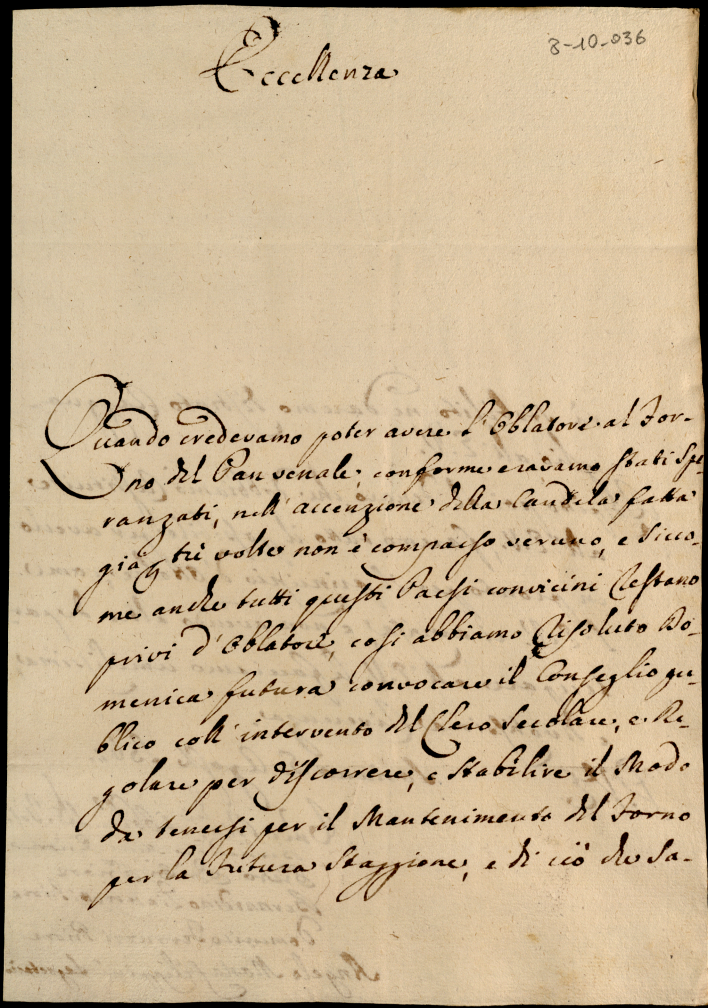 8-10-036
Eccellenza
Quando credevamo poter avere l'Oblatore al For-
no del Pan venale, conforme eravamo stati Spe-
ranzati, nell'accenzione della Candela fatta
già p tre volte non è comparso veruno, e sicco-
me anche tutti questi Paesi convicini Restano
privi d'Oblatore, così abbiamo Risoluto Do-
menica futura convocare il Conseglio pu-
blico coll'intervento del Clero Secolare, e Re-
golare per discorrere, e stabilire il Modo
da tenersi per il Mantenimento del Forno
per la Futura Staggione, e di ciò che Sa-